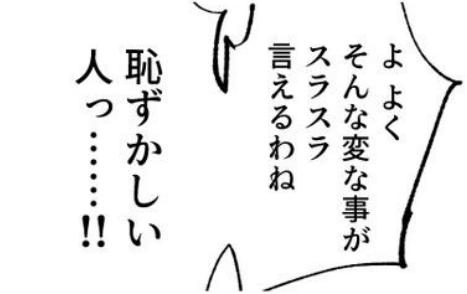 よ よく
そんな変な事が
スラスラ
言えるわね
恥ずかしい
人っ……!!